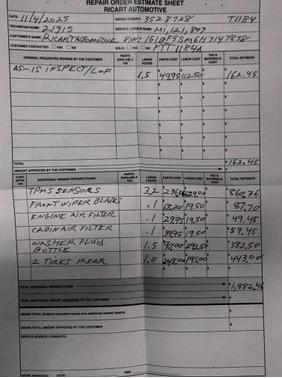 REPAIR ORDER ESTIMATE SHEET
RICART AUTOMOTIVE
DATE: 11/4/2025 REPAIR ORDER #: 3528728 T1184
TECHNICIAN NAME: 21915
CUSTOMER'S NAME: RICART AUTOMOTIVE
CUSTOMER CONTACTED YES NO YES NO
ORIGINAL REQUESTED REPAIRS (OR SERVICE) PARTS AVAILABLE Y/N LABOR HOURS PARTS COST LABOR COST TAX & MATERIALS COST TOTAL ESTIMATE
AS-IS INSPECT/LOF 1.5 49.95 112.50 $162.45
TOTAL $162.45
AMOUNT APPROVED BY THE CUSTOMER
ADDITIONAL REPAIRS FOUND PARTS AVAILABLE Y/N LABOR HOURS PARTS COST LABOR COST TAX & MATERIALS COST TOTAL ESTIMATE
TPMS SENSORS 3.2 $860.36
FRONT WIPER BLADES .1 68.20 19.50 $87.70
ENGINE AIR FILTER .1 29.95 19.50 $49.45
CABIN AIR FILTER .1 39.95 19.50 $59.45
WASHER FLUID BOTTLE 1.5 $382.50
2 TIRES REAR 1.0 248.00 195.00 $443.00
TOTAL ADDITIONAL REPAIRS FOUND $1,882.46
TOTAL ADDITIONAL AMOUNT APPROVED BY THE CUSTOMER
GRAND TOTAL
GRAND TOTAL AMOUNT APPROVED BY THE CUSTOMER
SERVICE ADVISOR COMMENTS: